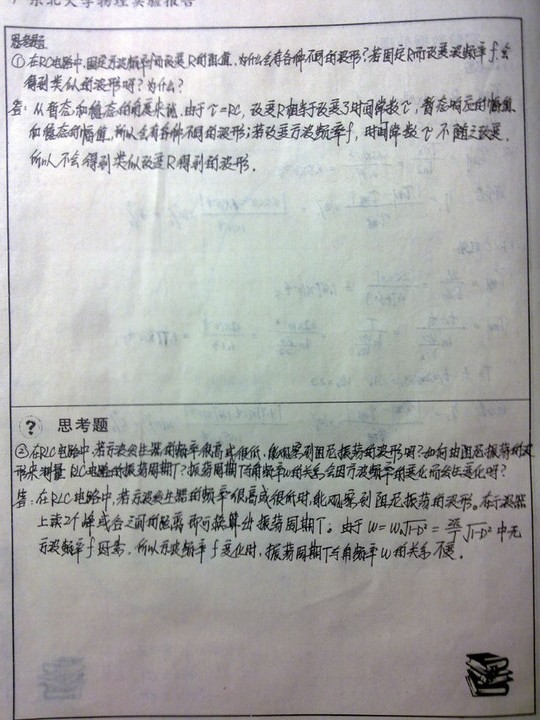 东北大学物理实验报告
思考题
①在RC电路中,固定方波频率f而改变R的阻值,为什么会有各种不同的波形?若固定R而改变方波频率f,会
得到类似的波形吗?为什么?
答:从暂态和稳态的角度来说,由于τ=RC,改变R相当于改变了时间常数τ,暂态响应的幅值
和稳态的幅值,所以会有各种不同的波形;若改变方波频率f,时间常数τ不随之改变,
所以不会得到类似改变R得到的波形.
? 思考题
②在RLC电路中,若方波发生器的频率很高或很低,能观察到阻尼振荡的波形吗?如何由阻尼振荡的波
形来测量RLC电路的振荡周期T?振荡周期T与角频率ω的关系会因方波频率的变化而发生变化吗?
答:在RLC电路中,若方波发生器的频率很高或很低时,能观察到阻尼振荡的波形。在示波器
上读2个峰或谷之间的距离即可换算出振荡周期T。由于W=W√1-D² = 2π/T √1-D² 中无
方波频率f因素,所以方波频率f变化时,振荡周期T与角频率ω的关系不变。